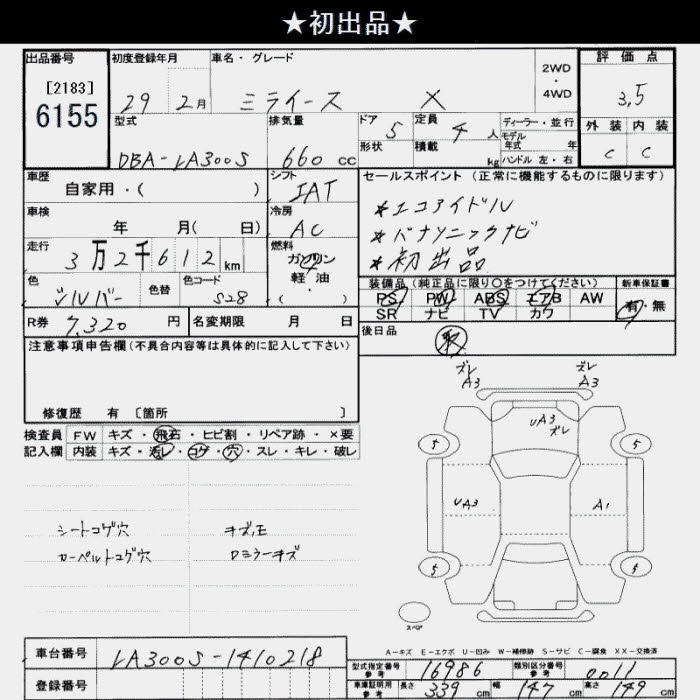 ★初出品★
出品番号 初度登録年月 車名・グレード 2WD・4WD 評価点
[2183]
6155
29 2月 ミライース X 3,5
型式 排気量 ドア 5 定員 4 人 ディーラー・並行 外装 内装
モデル年式 年
DBA-LA300S 660 cc 形状 積載 kg ハンドル 左・右 C C
車歴 シフト セールスポイント (正常に機能するものに限ります)
自家用・( ) IAT
車検 冷房 *エコアイドル
年 月( 日) AC *パナソニックナビ
走行 燃料 *初出品
3万2千612km ガソリン
軽油
・
( )
色 色替 色コード 装備品 (純正品に限り○をつけてください) 新車保証書
シルバー S28 PS PW ABS エアB AW 有・無
SR ナビ TV カワ
R券 7,320 円 名変期限 月 日 後日品 取
注意事項申告欄(不具合内容等は具体的に記入して下さい)
修復歴 有 〔箇所 〕
検査員 FW キズ・飛石・ヒビ割・リペア跡・×要
記入欄 内装 キズ・汚レ・コゲ・穴・スレ・キレ・破レ
シートコゲ穴 キズ,E
カーペルトコゲ穴 Dミラーキズ
ズレ ズレ
A3 A3
UA3
ズレ
5 5
UA3 A1
5 5
スペア
A-キズ E-エクボ U-凹み W-補修跡 S-サビ C-腐食 XX-交換済
車台番号 LA300S-1410218 型式指定番号 参考 16986 類別区分番号 参考 0011
登録番号 車庫証明用 参考 長さ 339 cm 幅 147 cm 高さ 149 cm